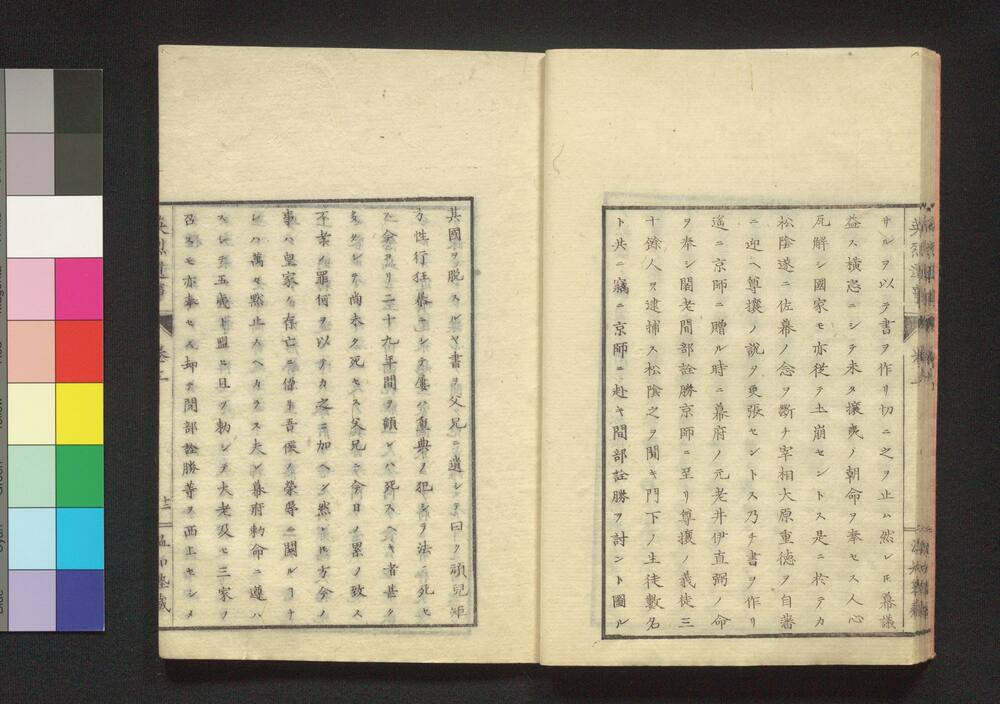 サルヲ以テ書ヲ作リ切ニ之ヲ止ム然レ𪜈幕議
益ス横恣ニシテ未タ攘夷ノ朝命ヲ奉セス人心
瓦解シ國家モ亦従テ土崩セントス是ニ於テカ
松陰遂ニ佐幕ノ念ヲ斷チ宰相大原重德ヲ自藩
ニ迎ヘ尊攘ノ説ヲ更張セントス乃チ書ヲ作リ
遥ニ京師ニ贈ル時ニ幕府ノ元老井伊直弼ノ命
ヲ奉シ閣老間部詮勝京師ニ至リ尊攘ノ義徒三
十餘人ヲ逮捕ス松陰之ヲ聞キ門下ノ生徒數名
ト共ニ竊ニ京師ニ赴キ間部詮勝ヲ討ント圖ル
其國ヲ脱スルヤ書ヲ父兄ニ遺シテ曰ク頑兒矩
方性行狂暴ニシテ屡ハ重典ノ犯シ法ニ死セ
ス今ヨリ二十九年間ヲ顧レハ死スヘキ者甚タ
多クシテ尚未タ死セス父兄ニ今日ノ累ノ致ス
不孝ノ罪何ヲ以テカ之ニ加ヘン然レ𪜈方今ノ
事ハ皇家ノ存亡ニ係リ吾侯ノ榮辱ニ關ル
レハ萬々黙止スヘカラス夫レ幕府勅命ニ遵ハ
スシテ五義ト盟ヒ且ツ勅シテ大老及ヒ三家ヲ
召スモ亦奉セス却テ間部詮勝等ヲ西上セシメ